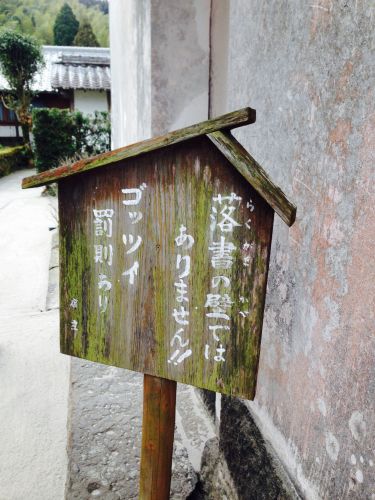 落書の壁では
らくがき かべ
ありません!!
ゴッツイ
罰則あり